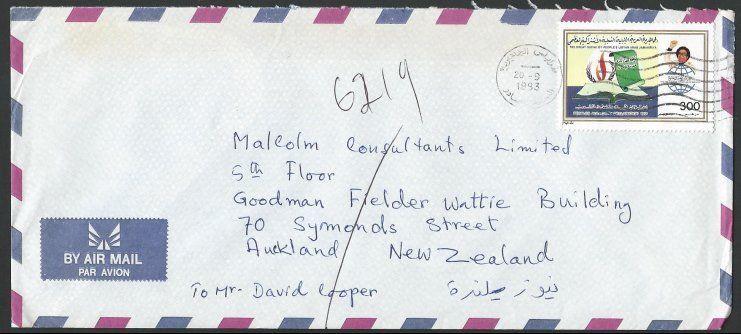 6219
الجماهيرية العربية الليبية الشعبية الاشتراكية العظمى
THE GREAT SOCIALIST PEOPLE'S LIBYAN ARAB JAMAHIRIYA
طرابلس
20-9
1993
300
Malcolm Consultants Limited
5th Floor
Goodman Fielder Wattie Building
70 Symonds Street
Auckland New Zealand
To Mr. David Cooper نيوزيلندة
BY AIR MAIL
PAR AVION